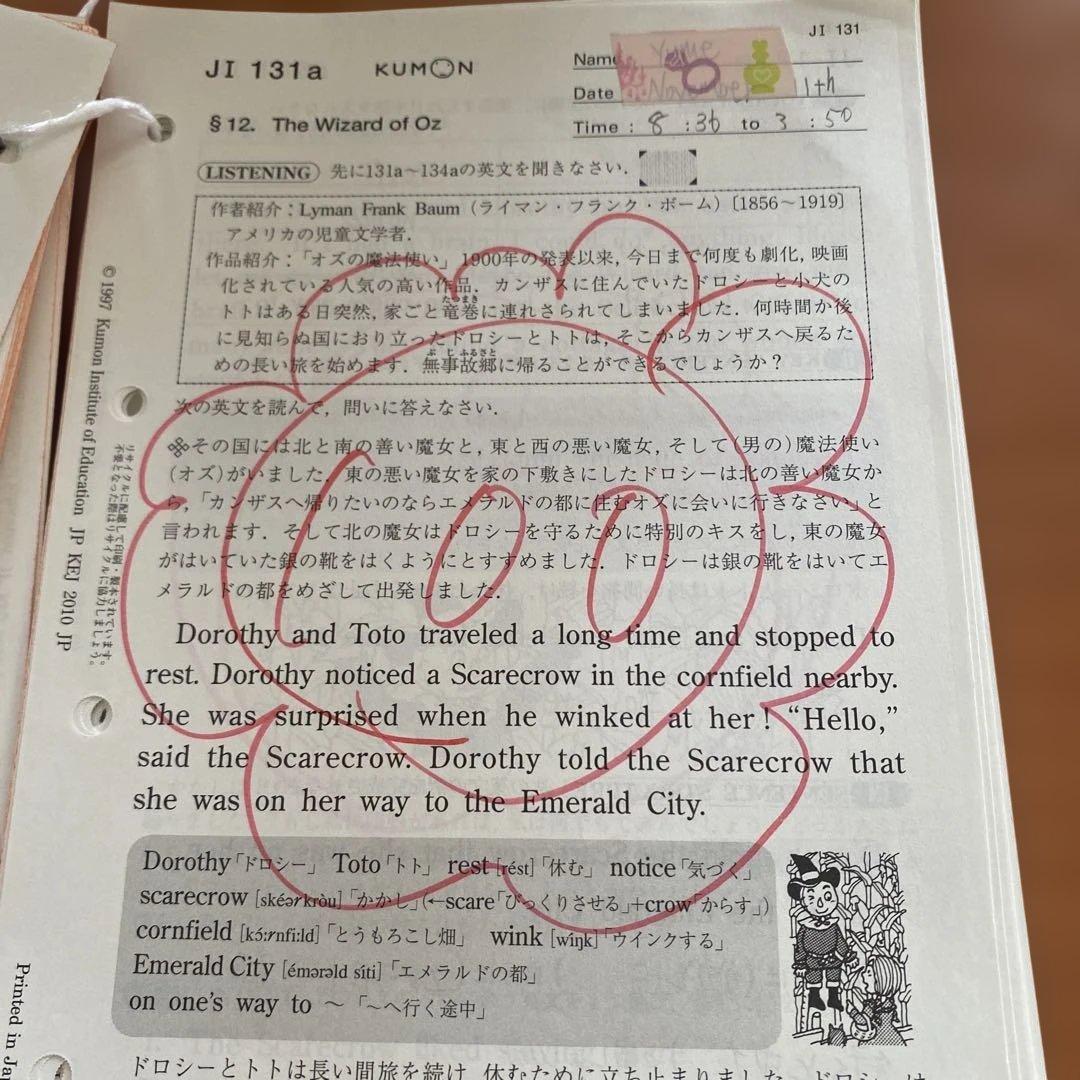 JI 131
JI 131a KUMON
Name
Date November 1th
§12. The Wizard of Oz
Time : 8 :36 to 3 : 50
LISTENING 先に131a〜134aの英文を聞きなさい.
作者紹介：Lyman Frank Baum（ライマン・フランク・ボーム）〔1856〜1919〕
アメリカの児童文学者.
作品紹介：「オズの魔法使い」1900年の発表以来, 今日まで何度も劇化, 映画
化されている人気の高い作品. カンザスに住んでいたドロシーと小犬の
たつまき
トトはある日突然, 家ごと竜巻に連れさられてしまいました. 何時間か後
に見知らぬ国におり立ったドロシーとトトは, そこからカンザスへ戻るた
ぶじ ふるさと
めの長い旅を始めます. 無事故郷に帰ることができるでしょうか？
次の英文を読んで, 問いに答えなさい.
⌘その国には北と南の善い魔女と, 東と西の悪い魔女, そして(男の)魔法使い
(オズ)がいました. 東の悪い魔女を家の下敷きにしたドロシーは北の善い魔女か
ら,「カンザスへ帰りたいのならエメラルドの都に住むオズに会いに行きなさい」と
言われます. そして北の魔女はドロシーを守るために特別のキスをし, 東の魔女
がはいていた銀の靴をはくようにとすすめました. ドロシーは銀の靴をはいてエ
メラルドの都をめざして出発しました.
Dorothy and Toto traveled a long time and stopped to
rest. Dorothy noticed a Scarecrow in the cornfield nearby.
She was surprised when he winked at her! “Hello,”
said the Scarecrow. Dorothy told the Scarecrow that
she was on her way to the Emerald City.
Dorothy「ドロシー」 Toto「トト」 rest [rést]「休む」 notice「気づく」
scarecrow [skéərkròu]「かかし」(←scare「びっくりさせる」+crow「からす」)
cornfield [kɔ́ːrnfiːld]「とうもろこし畑」 wink [wíŋk]「ウインクする」
Emerald City [émərəld síti]「エメラルドの都」
on one's way to 〜「〜へ行く途中」
ドロシーとトトは長い間旅を続け, 休むために立ち止まりました. ドロシーは
© 1997 Kumon Institute of Education JP KEJ 2010 JP
リサイクルに配慮して印刷・製本されています。
不要となった際はリサイクルに協力しましょう。
Printed in Ja